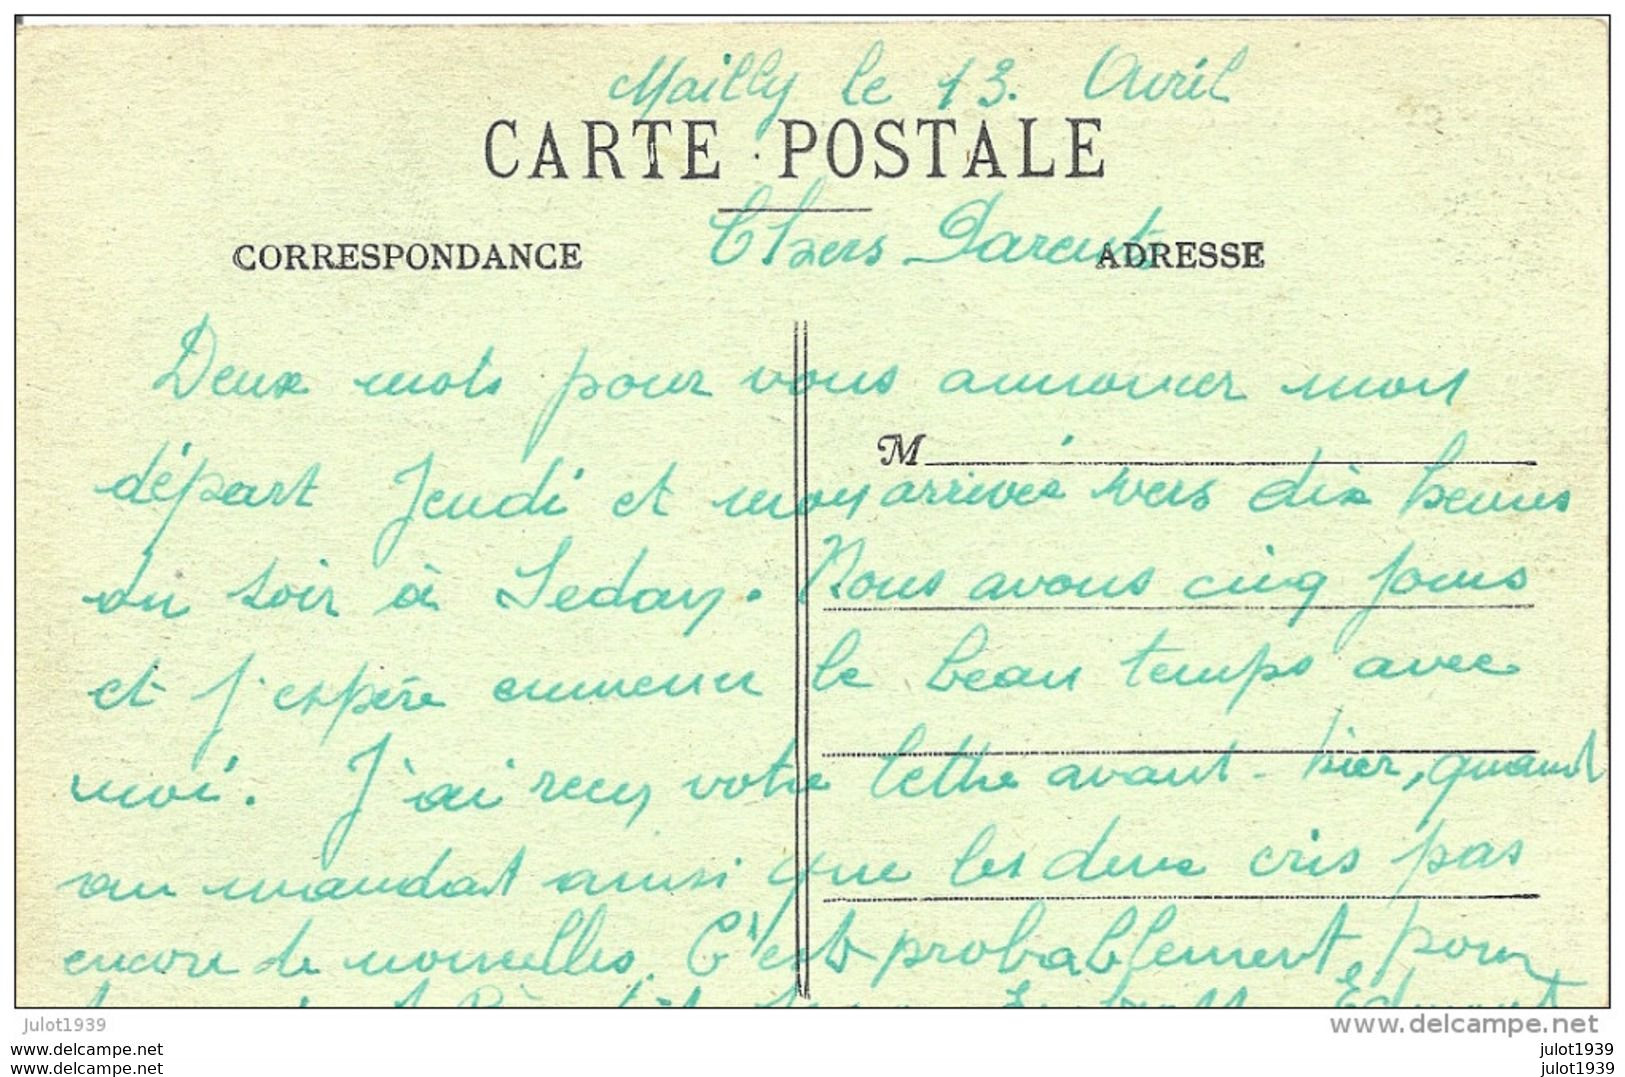 Mailly le 13. Avril
CARTE POSTALE
Chers Parents
CORRESPONDANCE
ADRESSE
Deux mots pour vous annoncer mon
M
départ Jeudi et mon arrivée vers dix heures
du soir à Sedan. Nous avons cinq jours
et j'espère emmener le beau temps avec
moi. J'ai reçu votre lettre avant-hier, quand
au mandat ainsi que les deux cris pas
encore de nouvelles. C'est probablement pour
Edmont
julot1939
www.delcampe.net
www.delcampe.net
www.delcampe.net
julot1939
julot1939